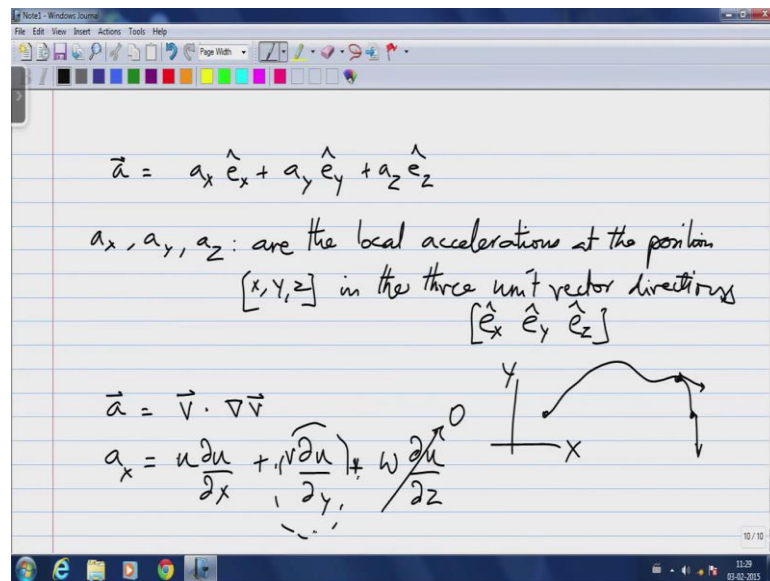 Note1 - Windows Journal
File Edit View Insert Actions Tools Help
Page Width
B I
a⃗ = aₓ êₓ + a_y ê_y + a_z ê_z
aₓ, a_y, a_z : are the local accelerations at the position
[x, y, z] in the three unit vector directions
[êₓ ê_y ê_z]
a⃗ = V⃗ · ∇V⃗
aₓ = u ∂u/∂x + v ∂u/∂y + w ∂u/∂z 0
Y
X
10 / 10
11:29
03-02-2015